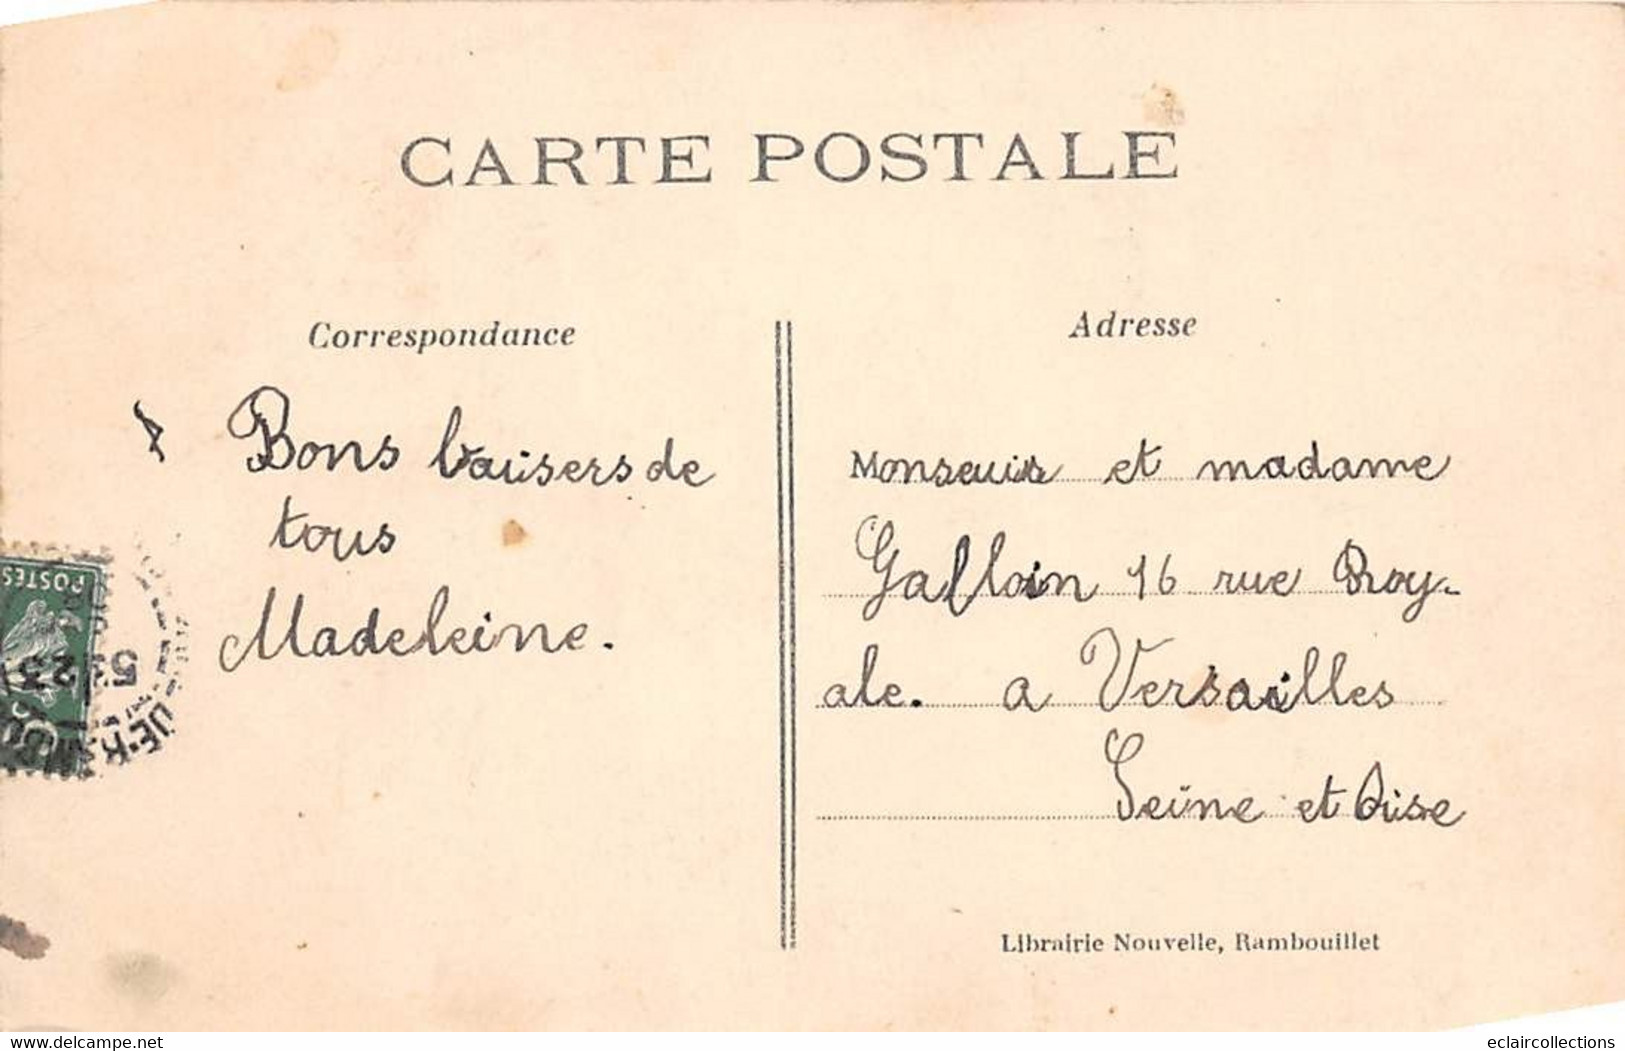 CARTE POSTALE
Correspondance
Bons baisers de
tous
Madeleine.
POSTES
Adresse
Monseuir et madame
Galloin 16 rue Roy-
ale. a Versailles
Seine et Oise
Librairie Nouvelle, Rambouillet
eclaircollections